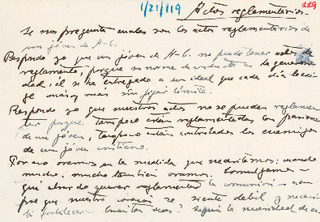 1/21/119
119
Actos reglamentarios
Se nos pregunta cuales son los actos reglamentarios de
un jóven de A-C.
Respondo yo que un jóven de A-C. no puede tener actos de
reglamento, porque su norma de conducta es la generosi-
dad, él se ha entregado a un ideal que cada día le exi-
ge mas y mas sin fijar límite.
Respondo yo que nuestros actos no se pueden reglamen-
tar porque tampoco están reglamentadas las pasiones
de un jóven, tampoco están controlados los enemigos
de un jóven cristiano.
Por eso oramos en la medida que necesitamos: cuando
mucho, mucho también oramos. Comulgamos
que absurdo querer reglamentar la comunión
pre que nuestro corazón se siente débil y necesi
ta fortalecerse según la necesidad de